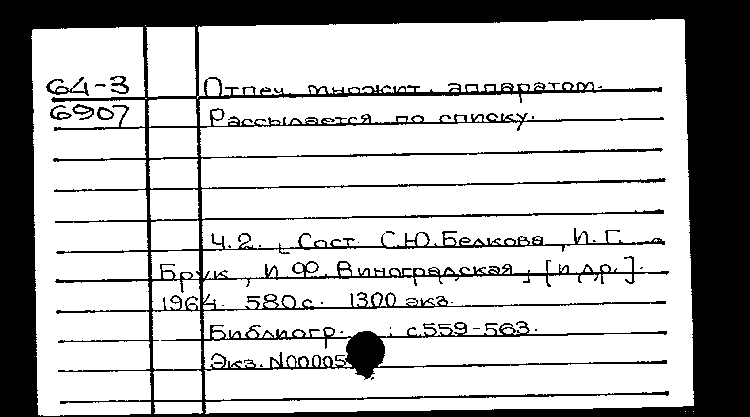 64-3 Отпеч. множит. аппаратом.
6907 Рассылается по списку.
Ч.2. [Сост. С.Ю. Белкова, И.Г.
Брук, И.Ф. Виноградская, [и др.].
1964. 580 с. 1300 экз.
Библиогр.: с 559-563.
Экз. N00005